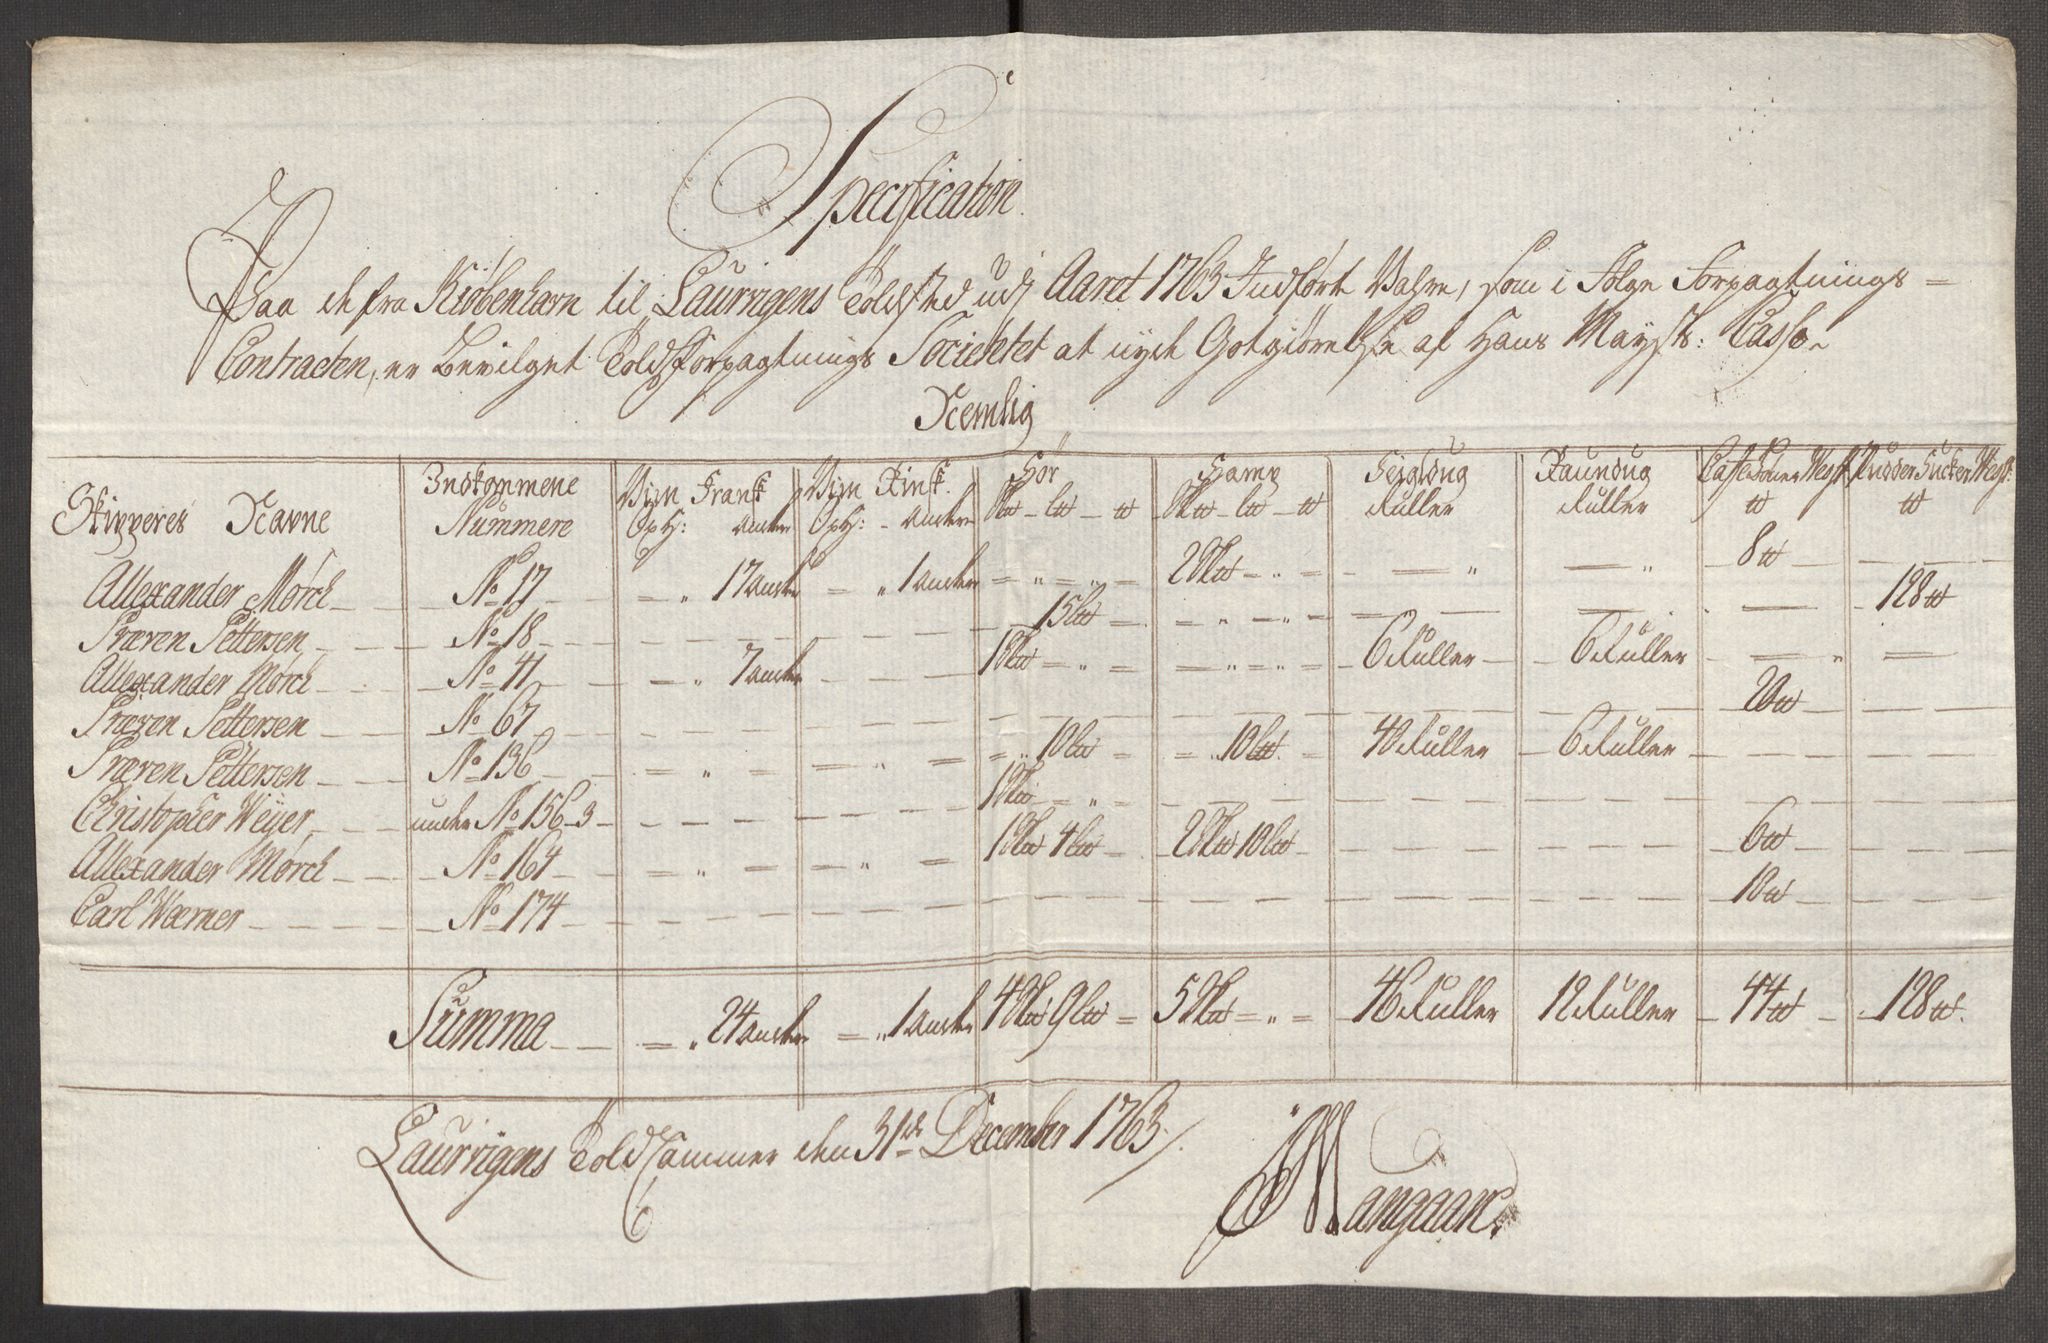 Specification.
Paa de fra Kiöbenhavn til Laurvigens Toldsted udj Aaret 1763 Indförte Vahre, som i Fölge Forpagtnings=
Contracten, er Bevilget Toldforpagtnings Societetet at nyde Godtgiörelse af Hans Mayst: Casse
Nemlig
Skipperes Navne Indkommene Nummere Viin Fransk OxH: Ancker Viin Rinsk. OxH: - Ancker Hör S℔ - L℔ - ℔ Hamp S℔ - L℔ - ℔ Segldug Ruller Raundug Ruller Caffebönner Vegt ℔ Pudder Sucker Vegt: ℔
Allexander Mörch No 17 = " 17 ancker = " 1 ancker = " = " = 2 S℔ = " = — " — " 8 ℔ —
Præven Pettersen No 18 15 L℔ = — " — " — — — 128 ℔
Allexander Mörch No 41 = " 7 ancker 1 S℔ = " = — " — " — 6 Ruller 6 Ruller — " —
Præven Pettersen No 67 20 ℔
Præven Pettersen No 136 = " = = " = = " 10 L℔ = = " 10 L℔. 40 Ruller 6 Ruller
Christopher Weyer under No 156-3 1 S℔ = " =
Allexander Mörch No 164 = " = = " = 1 S℔ 4 L℔ 2 S℔ 10 L℔ 6 ℔
Carl Wærner No 174 10 ℔
Summa = " 24 ancker = " 1 ancker 4 S℔ 9 L℔ = 5 S℔ = " = 46 Ruller 12 Ruller 44 ℔ 128 ℔.
Laurvigens Told Cammer den 31te December 1763.